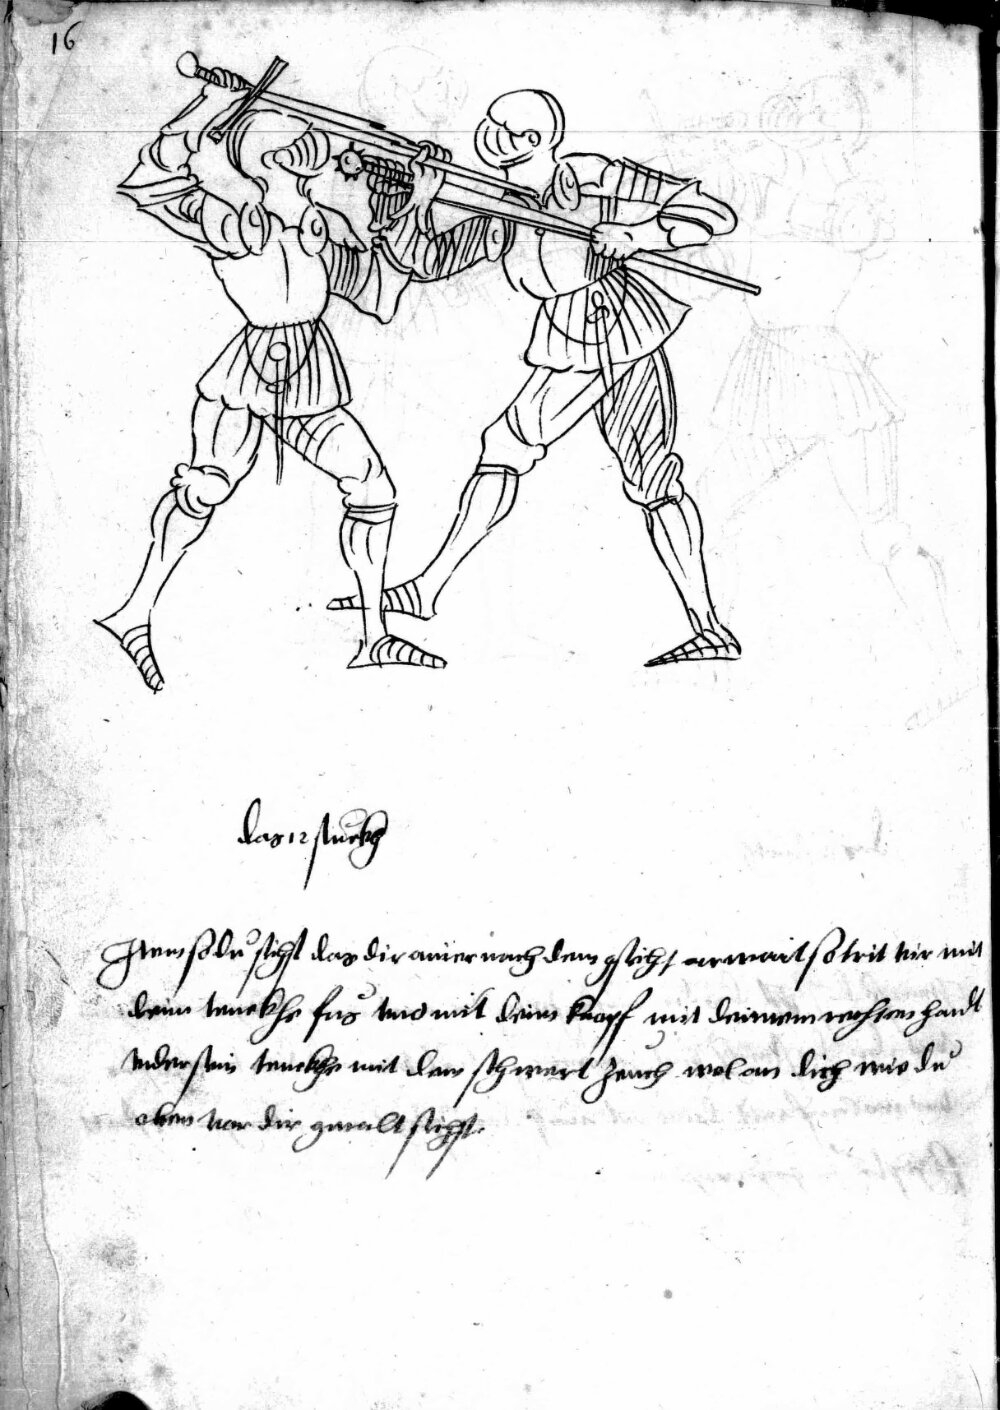 16
das 12 stuckh
Item so du sichst das dir ainer nach dem gsicht arwait so trit vir mit
deim tenckhe fus vnd mit deim knopf mit deinem rechten handt
vnder sein tenckhe mit dem schwert zeuch wol an dich wie du
oben vor dir gmalt sichst.